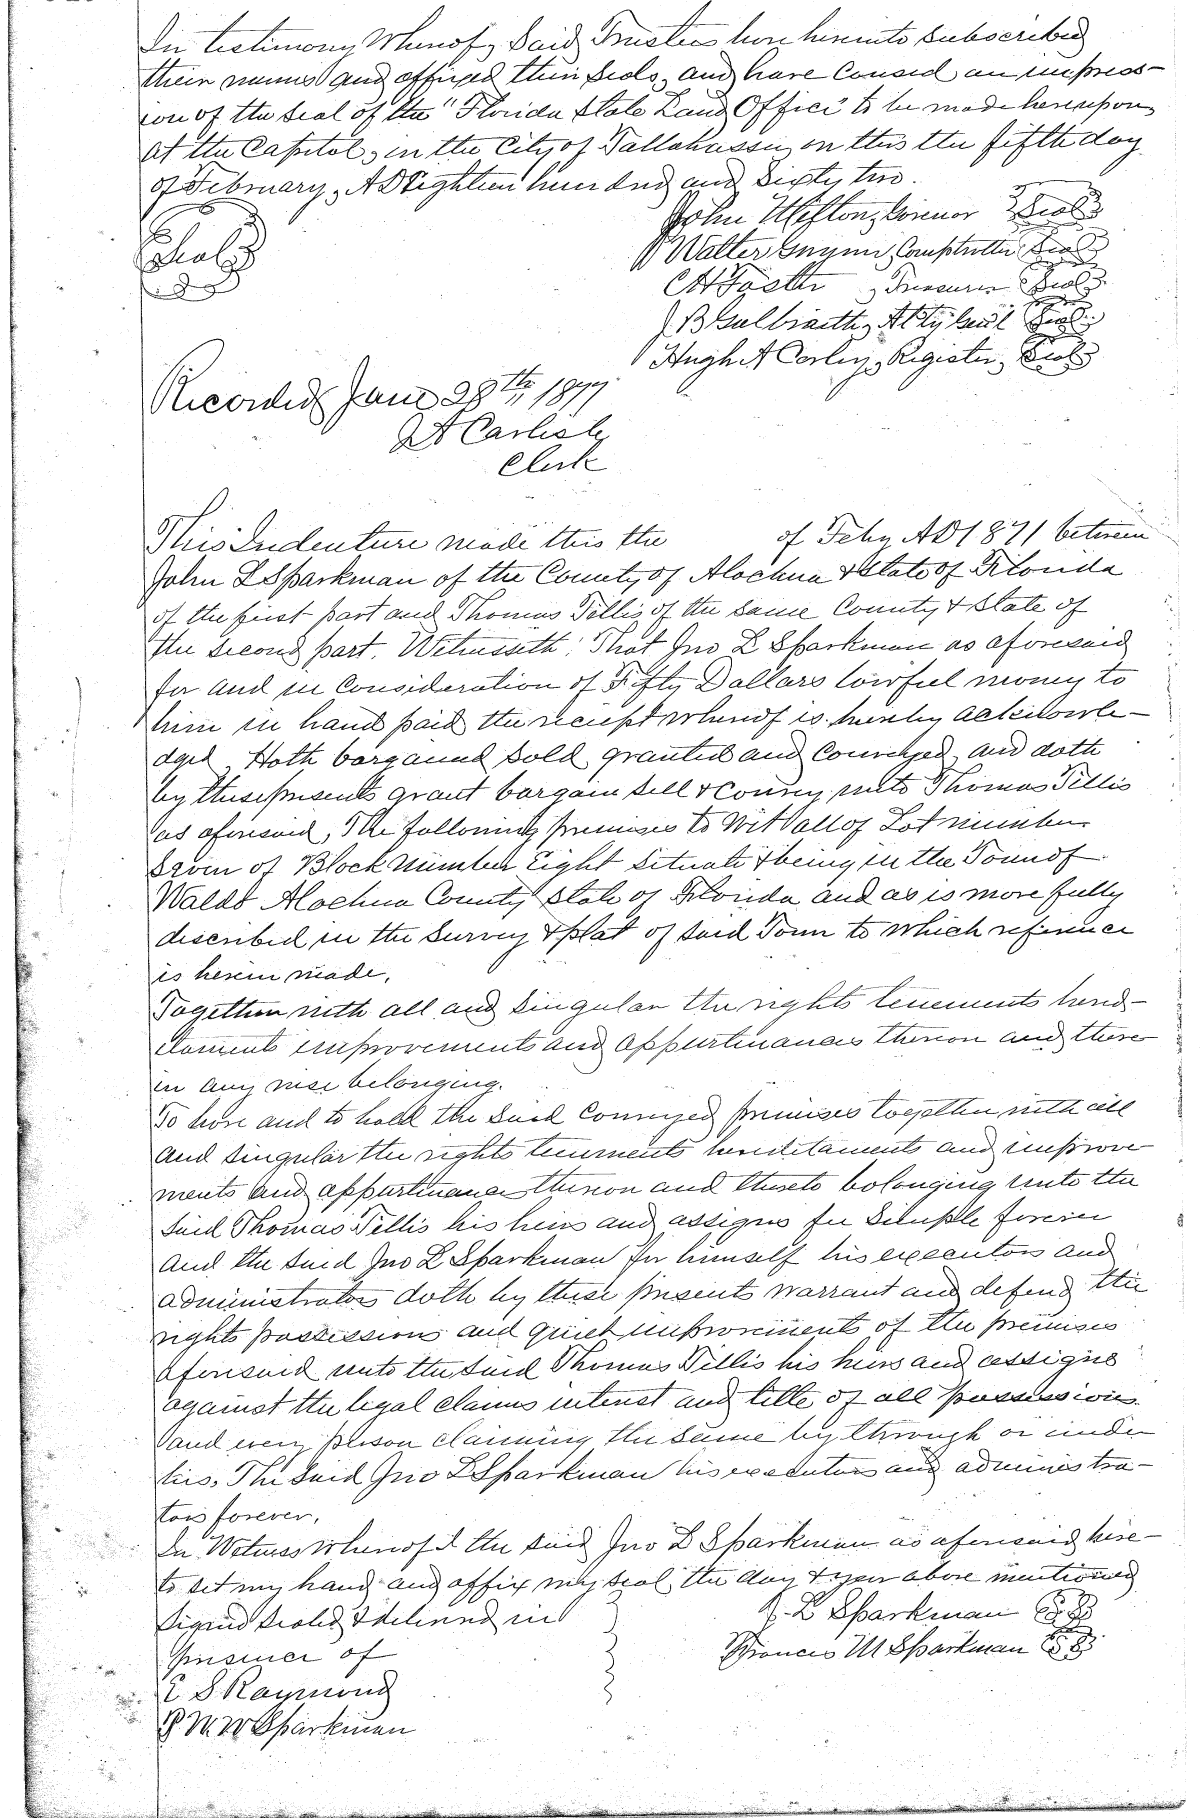 In testimony Whereof, Said Trustees have hereunto subscribed
their names and affixed their seals, and have caused an impress-
ion of the seal of the "Florida State Land Office" to be made hereupon,
at the Capitol, in the City of Tallahassee, on this the fifth day
of February, A D Eighteen hundred and Sixty two.
John Milton, Govenor Seal
Walter Gwynn, Comptroller Seal
C A Foster, Treasurer Seal
Seal
J B Galbraith, Atty Genl Seal
Hugh A Corley, Register, Seal
Recorded June 28th, 1877
J A Carlisle
Clerk
This Indenture made this the of Feby AD 1871 between
John L Sparkman of the County of Alachua & State of Florida
of the first part and Thomas Tillis of the same County & State of
the second part. Witnesseth: That Jno L Sparkman as aforesaid
for and in Consideration of Fifty Dollars lawful money to
him in hand paid the receipt whereof is hereby acknowle-
dged, Hath bargained sold granted and Conveyed, and doth
by these presents grant bargain sell & convey unto Thomas Tillis
as aforesaid, The following premises to Wit all of Lot number
Seven of Block Number Eight Situate & being in the Town of
Waldo Alachua County State of Florida and as is more fully
described in the Survey & plat of said Town to which reference
is herein made.
Together with all and Singular the rights tenements hered-
itaments improvements and appurtinances thereon and there
in any wise belonging.
To have and to hold the said Conveyed premises together with all
and Singular the rights tenements hereditaments and improve
ments and appurtinances thereon and thereto belonging unto the
said Thomas Tillis his heirs and assigns fee Simple forever
and the said Jno L Sparkman for himself his executors and
administrators doth by these presents warrant and defend the
rights possession and quiet improvements of the premises
aforesaid unto the said Thomas Tillis his heirs and assigns
against the legal claims interest and title of all possessions
and every person claiming the same by through or under
his, The said Jno L Sparkman his executors and administra-
tors forever.
In Witness Whereof I the said Jno L Sparkman as aforesaid here-
to set my hand and affix my seal the day & year above mentioned
Signed Sealed & delivered in
J. L Sparkman
presence of
Francis M Sparkman
E S Raymond
M W Sparkman